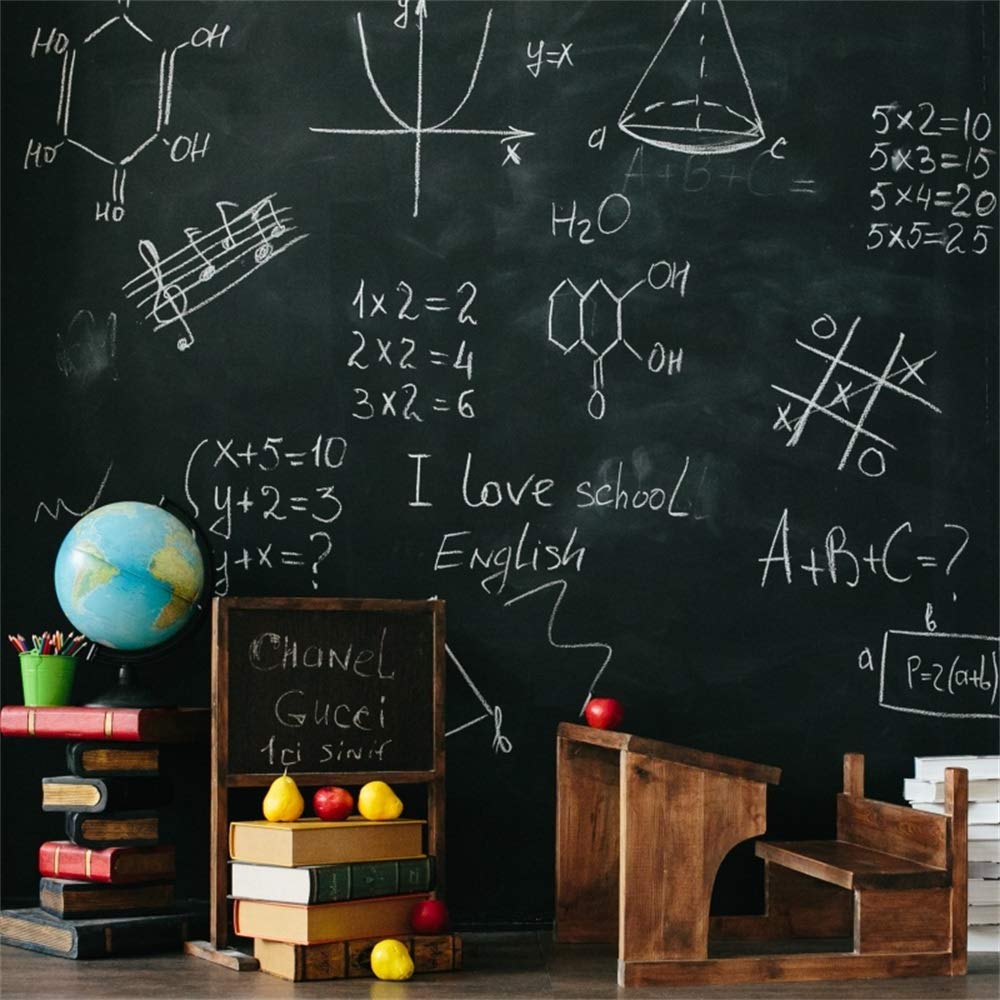 HO
OH
y
x
y=x
HO
OH
HO
a
c
A+B+C=
5x2=10
5x3=15
5x4=20
5x5=25
H₂O
1x2=2
2x2=4
3x2=6
OH
OH
O
O
X
X
X
O
x+5=10
y+2=3
y+x=?
I love school
English
A+B+C=?
b
a
P=2(a+b)
CHANEL
GUCCI
1ci sinif